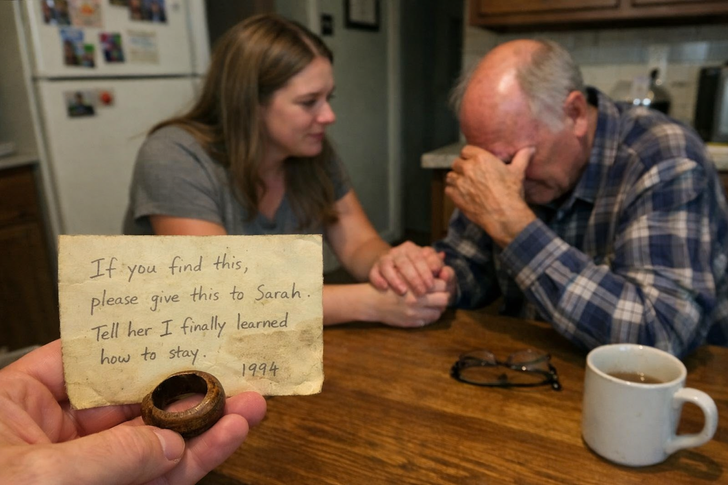 If you find this,
please give this to Sarah.
Tell her I finally learned
how to stay.
1994